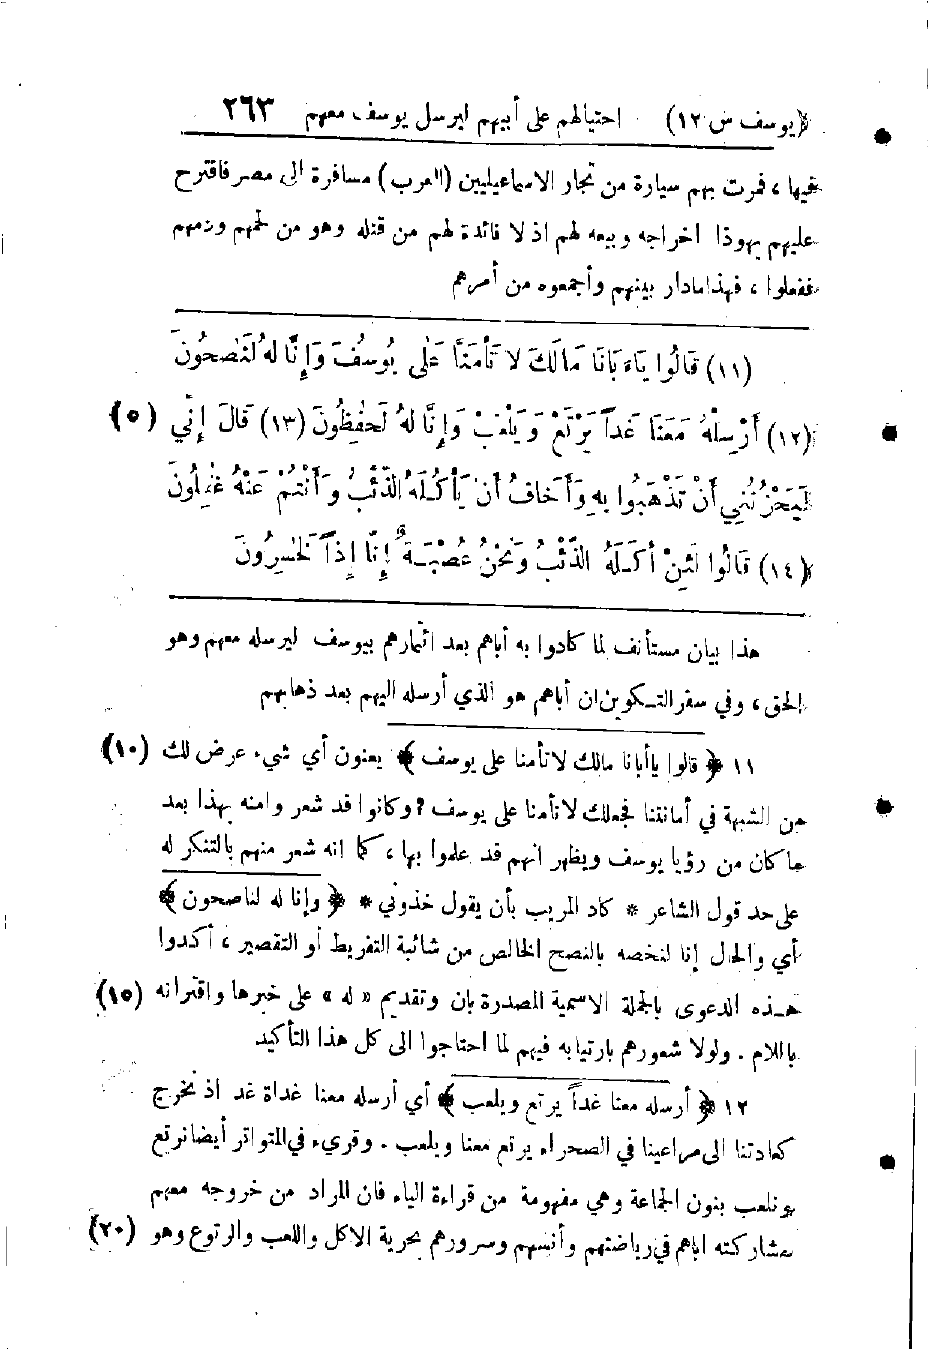 (يوسف س ١٢) احتيالهم على أبيهم ليرسل يوسف معهم ٢٦٣
فيها ، فمرت بهم سيارة من تجار الاسماعيليين (العرب) مسافرة الى مصر فاقترح
عليهم يهوذا اخراجه وبيعه لهم اذ لا فائدة لهم من قتله وهو من لحمهم ودمهم
ففعلوا ، فهذا مادار بينهم وأجمعوه من أمرهم
(١١) قَالُوا يَاءَبَانَا مَالَكَ لَا تَأْمَنَّا عَلَى يُوسُفَ وَإِنَّا لَهُ لَنَصِحُونَ
(١٢) أَرْسِلْهُ مَعَنَا غَداً يَرْتَعْ وَيَلْعَبْ وَإِنَّا لَهُ لَحَفِظُونَ (١٣) قَالَ إِنِّي (٥)
لَيَحْزُنُنِي أَنْ تَذْهَبُوا بِهِ وَأَخَافُ أَنْ يَأْكُلَهُ الذِّئْبُ وَأَنْتُمْ عَنْهُ غَفِلُونَ
(١٤) قَالُوا لَئِنْ أَكَلَهُ الذِّئْبُ وَنَحْنُ عُصْبَةٌ إِنَّا إِذاً لَخَسِرُونَ
هذا بيان مستأنف لما كادوا به أباهم بعد ائتمارهم بيوسف ليرسله معهم وهو
الحق ، وفي سفر التكوين ان أباهم هو الذي أرسله اليهم بعد ذهابهم
١١ ﴿ قالوا ياأبانا مالك لا تأمنا على يوسف ﴾ يعنون أي شيء عرض لك (١٠)
من الشبهة في أمانتنا فجعلك لا تأمنا على يوسف ؟ وكانوا قد شعروا منه بهذا بعد
ما كان من رؤيا يوسف ويظهر انهم قد علموا بها ، كما انه شعر منهم بالتنكر له
على حد قول الشاعر * كاد المريب بأن يقول خذوني * ﴿ وإنا له لناصحون ﴾
أي والحال إنا لنخصه بالنصح الخالص من شائبة التفريط أو التقصير ، أكدوا
هذه الدعوى بالجملة الاسمية المصدرة بان وتقديم « له » على خبرها واقترانه (١٥)
باللام . ولولا شعورهم بارتيابه فيهم لما احتاجوا الى كل هذا التأكيد
١٢ ﴿ أرسله معنا غداً يرتع ويلعب ﴾ أي أرسله معنا غداة غد اذ نخرج
كعادتنا الى مراعينا في الصحراء يرتع معنا ويلعب . وقريء في المتواتر أيضا نرتع
ونلعب بنون الجماعة وهي مفهومة من قراءة الياء فان المراد من خروجه معهم
مشاركته اياهم في رياضتهم وأنسهم وسرورهم بحرية الاكل واللعب والرتوع وهو (٢٠)